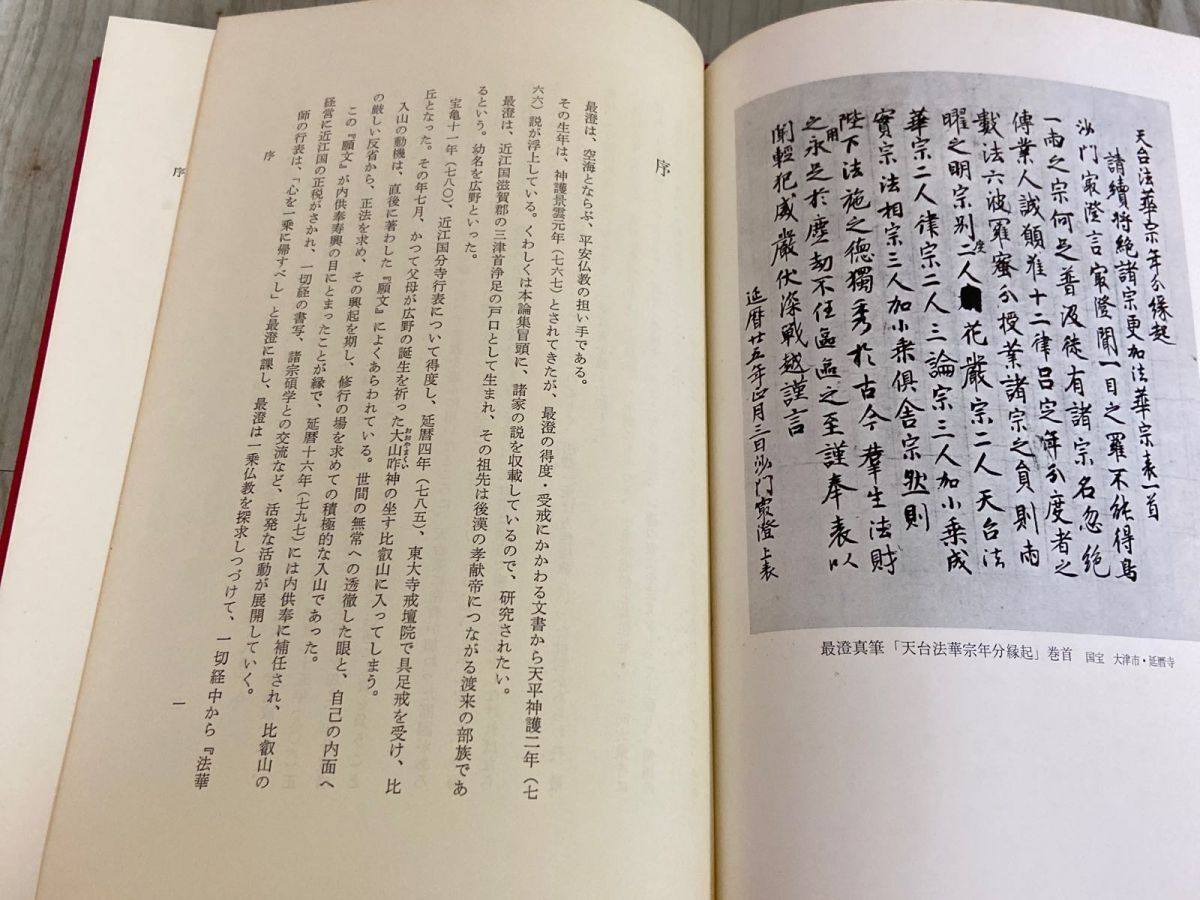 天台法華宗年分縁起
請續将絶諸宗更加法華宗表一首
沙門最澄言最澄聞一目之羅不能得鳥
一両之宗何足普汲徒有諸宗名忽絶
傳業人誠願准十二律呂定年分度者之
數法六波羅蜜分授業諸宗之員則両
曜之明宗別度二人花嚴宗二人天台法
華宗二人律宗二人三論宗三人加小乗成
實宗法相宗三人加小乗倶舎宗然則
陛下法施之徳獨秀於古今羣生法財
之用永足於塵劫不任區區之至謹奉表以
聞輕犯威嚴伏深戰越謹言
延暦廿五年正月三日沙門最澄上表
最澄真筆「天台法華宗年分縁起」巻首 国宝 大津市・延暦寺
序
最澄は、空海とならぶ、平安仏教の担い手である。
その生年は、神護景雲元年(七六七)とされてきたが、最澄の得度・受戒にかかわる文書から天平神護二年(七
六六)説が浮上している。くわしくは本論集冒頭に、諸家の説を収載しているので、研究されたい。
最澄は、近江国滋賀郡の三津首浄足の戸口として生まれ、その祖先は後漢の孝献帝につながる渡来の部族であ
るという。幼名を広野といった。
宝亀十一年(七八〇)、近江国分寺行表について得度し、延暦四年(七八五)、東大寺戒壇院で具足戒を受け、比
丘となった。その年七月、かつて父母が広野の誕生を祈った大山咋神の坐す比叡山に入ってしまう。
おおやまくい
入山の動機は、直後に著わした『願文』によくあらわれている。世間の無常への透徹した眼と、自己の内面へ
の厳しい反省から、正法を求め、その興起を期し、修行の場を求めての積極的な入山であった。
この『願文』が内供奉寿興の目にとまったことが縁で、延暦十六年(七九七)には内供奉に補任され、比叡山の
経営に近江国の正税がさかれ、一切経の書写、諸宗碩学との交流など、活発な活動が展開していく。
師の行表は、「心を一乗に帰すべし」と最澄に課し、最澄は一乗仏教を探求しつづけて、一切経中から『法華
序
一
序